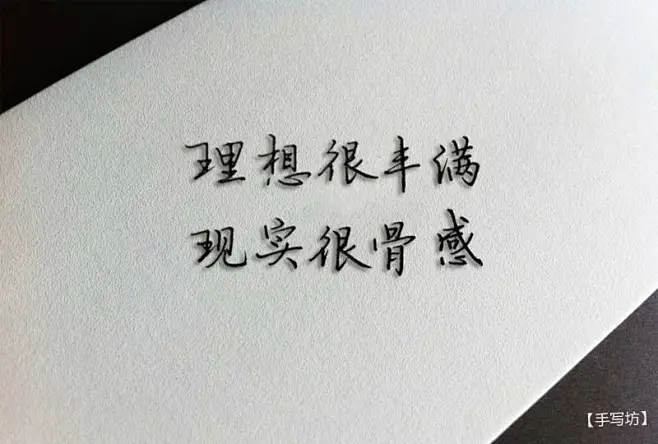 理想很丰满
现实很骨感
【手写坊】